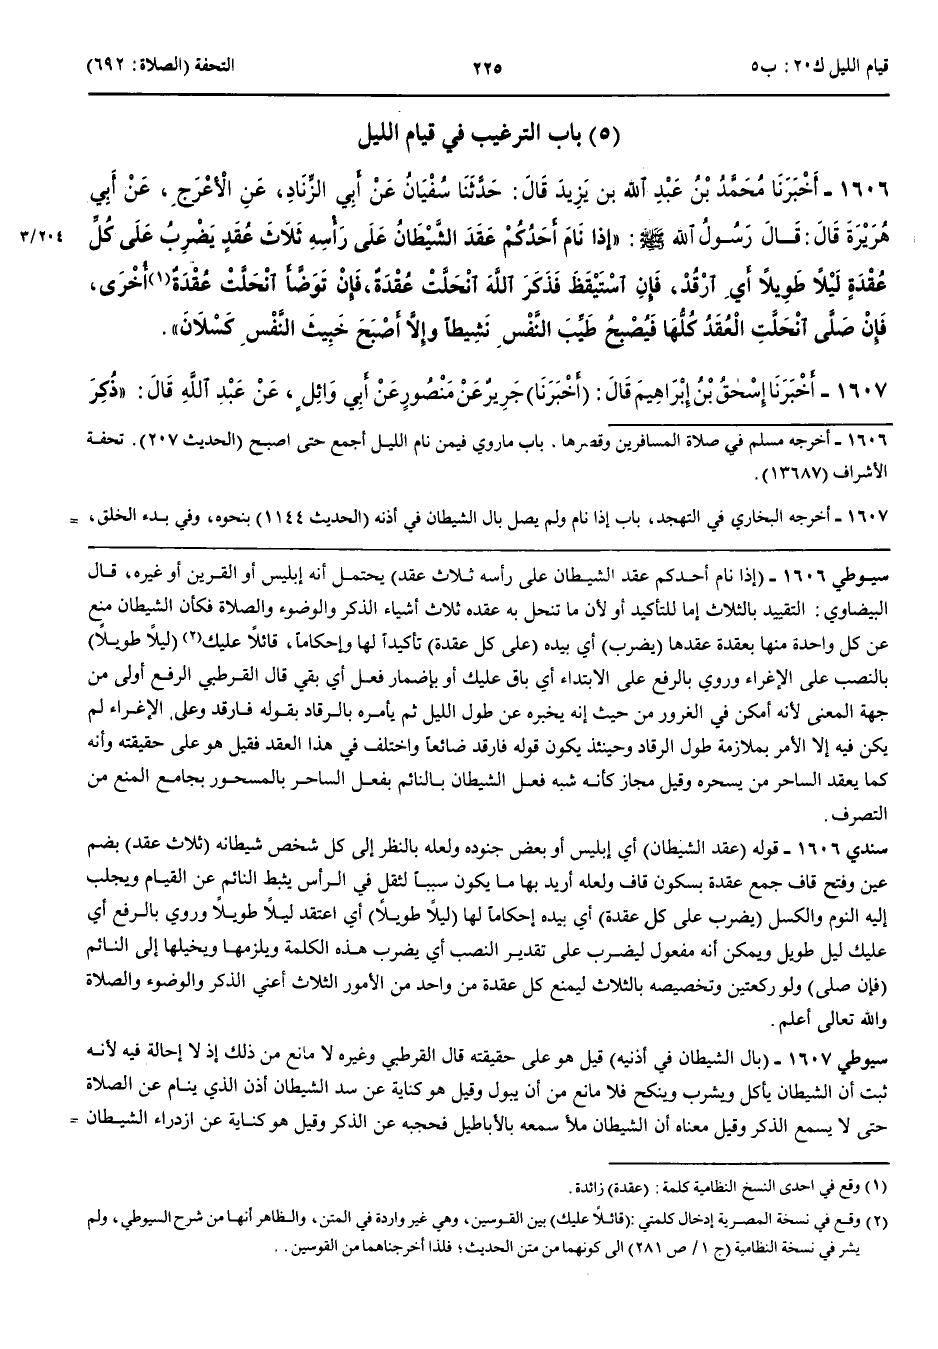 قيام الليل ك٢٠: ب٥
٢٢٥
التحفة (الصلاة: ٦٩٢)
(٥) باب الترغيب في قيام الليل
١٦٠٦ ـ أَخْبَرَنَا مُحَمَّدُ بْنُ عَبْدِ ٱلله بن يَزِيدَ قَالَ: حَدَّثَنَا سُفْيَانُ عَنْ أَبِي الزِّنَادِ، عَنِ الْأَعْرَجِ، عَنْ أَبِي
هُرَيْرَةَ قَالَ: قَـالَ رَسُـولُ ٱلله ﷺ: «إذا نَامَ أَحَدُكُمْ عَقَدَ الشَّيْطَانُ عَلَى رَأْسِهِ ثَلَاثَ عُقَدٍ يَضْرِبُ عَلَى كُلِّ
٣/٢٠٤
عُقْدَةٍ لَيْلًا طَوِيلًا أَيِ ٱرْقُدْ، فَإِنِ ٱسْتَيْقَظَ فَذَكَرَ اللَّهَ ٱنْحَلَّتْ عُقْدَةٌ، فَإِنْ تَوَضَّأَ ٱنْحَلَّتْ عُقْدَةٌ(١) أُخْرَى،
فَإِنْ صَلَّى ٱنْحَلَّتِ الْعُقَدُ كُلُّهَا فَيُصْبِحُ طَيِّبَ النَّفْسِ نَشِيطاً وإِلَّا أَصْبَحَ خَبِيثَ النَّفْسِ كَسْلَانَ».
١٦٠٧ ـ أَخْبَرَنَا إِسْحٰقُ بْنُ إِبْرَاهِيمَ قَالَ: (أَخْبَرَنَا) جَرِيرٌ عَنْ مَنْصُورٍ عَنْ أَبِي وَائِلٍ، عَنْ عَبْدِ ٱللَّهِ قَالَ: «ذُكِرَ
١٦٠٦ ـ أخرجه مسلم في صلاة المسافرين وقصرها. باب ماروي فيمن نام الليل أجمع حتى اصبح (الحديث ٢٠٧). تحفة
الأشراف (١٣٦٨٧).
١٦٠٧ ـ أخرجه البخاري في التهجد، باب إذا نام ولم يصل بال الشيطان في أذنه (الحديث ١١٤٤) بنحوه، وفي بدء الخلق، =
سيوطي ١٦٠٦ ـ (إذا نام أحدكم عقد الشيطان على رأسه ثلاث عقد) يحتمل أنه إبليس أو القرين أو غيره، قال
البيضاوي: التقييد بالثلاث إما للتأكيد أو لأن ما تنحل به عقده ثلاث أشياء الذكر والوضوء والصلاة فكأن الشيطان منع
عن كل واحدة منها بعقدة عقدها (يضرب) أي بيده (على كل عقدة) تأكيداً لها وإحكاماً، قائلاً عليك(٢) (ليلاً طويلاً)
بالنصب على الإغراء وروي بالرفع على الابتداء أي باق عليك أو بإضمار فعل أي بقي قال القرطبي الرفع أولى من
جهة المعنى لأنه أمكن في الغرور من حيث إنه يخبره عن طول الليل ثم يأمره بالرقاد بقوله فارقد وعلى الإغراء لم
يكن فيه إلا الأمر بملازمة طول الرقاد وحينئذ يكون قوله فارقد ضائعاً واختلف في هذا العقد فقيل هو على حقيقته وأنه
كما يعقد الساحر من يسحره وقيل مجاز كأنه شبه فعل الشيطان بالنائم بفعل الساحر بالمسحور بجامع المنع من
التصرف.
سندي ١٦٠٦ ـ قوله (عقد الشيطان) أي إبليس أو بعض جنوده ولعله بالنظر إلى كل شخص شيطانه (ثلاث عقد) بضم
عين وفتح قاف جمع عقدة بسكون قاف ولعله أريد بها ما يكون سبباً لثقل في الرأس يثبط النائم عن القيام ويجلب
إليه النوم والكسل (يضرب على كل عقدة) أي بيده إحكاماً لها (ليلاً طويلاً) أي اعتقد ليلاً طويلاً وروي بالرفع أي
عليك ليل طويل ويمكن أنه مفعول ليضرب على تقدير النصب أي يضرب هذه الكلمة ويلزمها ويخيلها إلى النائم
(فإن صلى) ولو ركعتين وتخصيصه بالثلاث ليمنع كل عقدة من واحد من الأمور الثلاث أعني الذكر والوضوء والصلاة
والله تعالى أعلم.
سيوطي ١٦٠٧ ـ (بال الشيطان في أذنيه) قيل هو على حقيقته قال القرطبي وغيره لا مانع من ذلك إذ لا إحالة فيه لأنه
ثبت أن الشيطان يأكل ويشرب وينكح فلا مانع من أن يبول وقيل هو كناية عن سد الشيطان أذن الذي ينام عن الصلاة
حتى لا يسمع الذكر وقيل معناه أن الشيطان ملأ سمعه بالأباطيل فحجبه عن الذكر وقيل هو كناية عن ازدراء الشيطان =
(١) وقع في احدى النسخ النظامية كلمة: (عقدة) زائدة.
(٢) وقع في نسخة المصرية إدخال كلمتي: (قائلاً عليك) بين القوسين، وهي غير واردة في المتن، والظاهر أنها من شرح السيوطي، ولم
يشر في نسخة النظامية (ج ١/ ص ٢٨١) الى كونهما من متن الحديث؛ فلذا أخرجناهما من القوسين. .